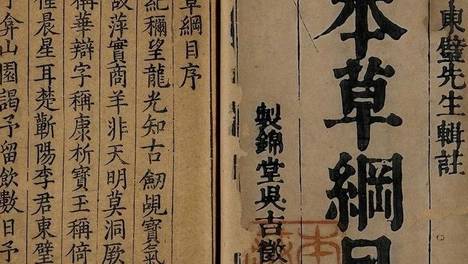 東璧先生輯註
本草綱目
製錦堂吳吉徵
草綱目序
紀稱望龍光知古劎覘寶氣
故萍實商羊非天明莫洞厥
稱華辯字稱康析寶玉稱倚
惟晨星耳楚蘄陽李君東璧
予弇山園謁予留飲數日予